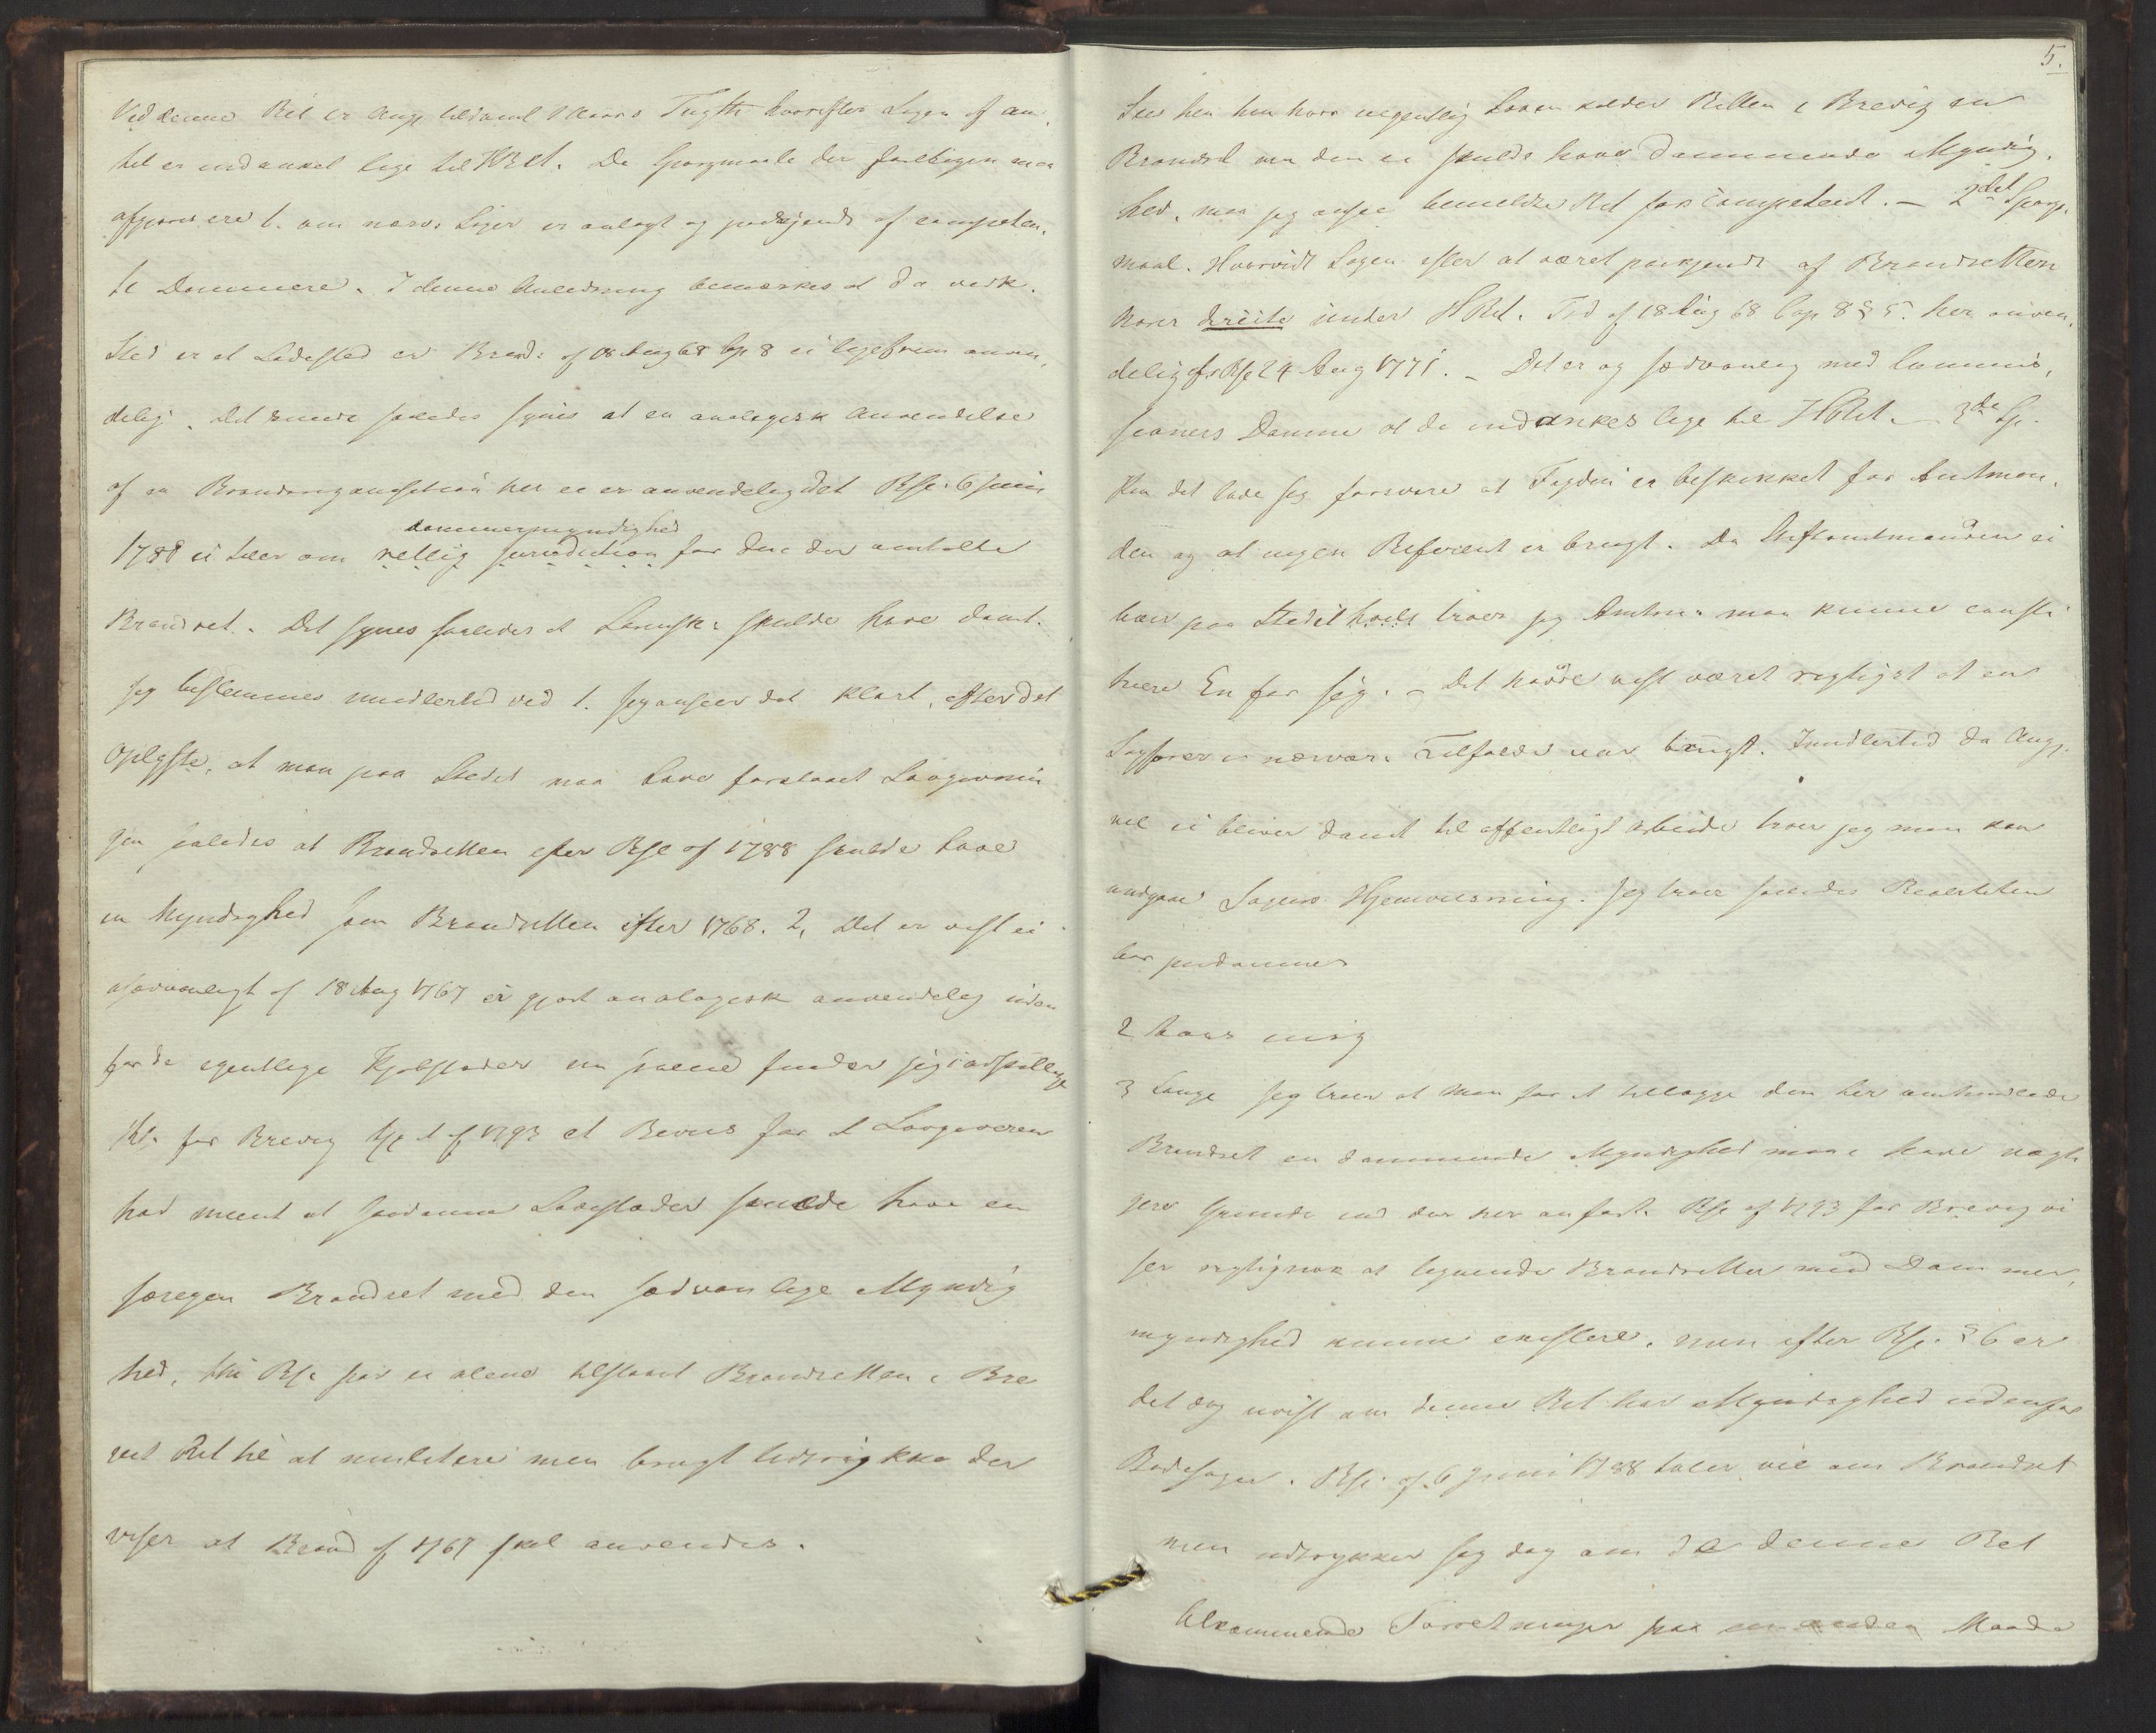 Ved denne Ret er Ang. tildømt 1 Aars Tugth. hvorefter Sagen af am-
tet er indanket lige til HRet. De Spørgsmaale der foreløbigen maa
afgjøres ere 1. om nærv. Sager er anlagt og paakjendt af competen-
te Dommere. I denne Anledning bemærkes at da vedk.
Sted er et Ladested er Brand: af 18 Aug 68 Cp 8 ei ligefrem anven-
delig. Det kunde saaledes synes at en analogisk Anvendelse
af en Brandorganisation her ei er anvendelig det Rsc. 6 Juni
dommermyndighed
1788 ei taler om retlig jurisdiction for den der omtalte
Brandret. Det synes saaledes at skulde have dømt.
Jeg bestemmes imidlertid ved 1. Jeg anseer det klart, efter det
Oplyste, at man paa Stedet maa have forstaaet Lovgivnin
gen saaledes at Brandretten efter Rsc af 1788 skulde have
en Myndighed som Brandretten efter 1768. 2, Det er vist ei
usædvanligt af 18 Aug 1767 er gjort analogisk anvendelig uden
for de egentlige Kjøbstæder
for Brevig af 1793 et Beviis for at Lovgiveren
har meent at saadanne Ladestæder skulde have en
særegen Brandret med den sædvanlige Myndig
hed, thi Rsc har ei alene tilstaaet Brandretten i Bre
vig Ret til at mulctere men brugt Udtryk der
viser at Brand af 1767 skal anvendes.
5.
Seer hen hvor uegentlig Loven kalder Retten i Brevig en
Brandret om den ei skulde have dømmende Myndig-
hed, maa jeg ansee bemeldte Ret for competent. — 2det Spørgs-
maal. Hvorvidt Sagen efter at være paakjendt af Brandretten
hører directe under HRet. Frd af 18 Aug 68 Cap 8 § 5. her anven-
delig cfr Rsc 24 Aug 1771. — Det er og sædvanlig med Commis-
sioners Domme at de indankes lige til HRet. — 3die Sp.
Kan det lade sig forsvare at Fogden er beskikket for Amtman-
den og at ingen Referent er brugt. Da Stiftamtmanden ei
boer paa Stedet troer jeg Amtm. maa kunne consti-
tuere En for sig. — Det havde vist været rigtigst at en
Sagfører i nærvær. Tilfælde var brugt. Imidlertid da Ang.
vel ei bliver dømt til offentligt Arbeide troer jeg man kan
undgaae Sagens Hjemviisning. Jeg troer saaledes Realiteten
bør paadømmes
2 enig
3 Lange Jeg troer at man for at tillægge den her omhandlede
Brandret en dømmende Myndighed maa have vægti
gere Grunde end der her anført. Rsc af 1793 for Brevig vi
ser rigtignok at lignende Brandretter med Dommer-
myndighed kunne existere, men efter Rsc. § 6 er
det dog uvist om denne Ret har Myndighed udenfor
Bødesager. Rsc. af 6 Juni 1788 taler vel om Brandret
men udtrykker sig dog om de denne Ret
tilkommende Forretninger paa en anden Maade